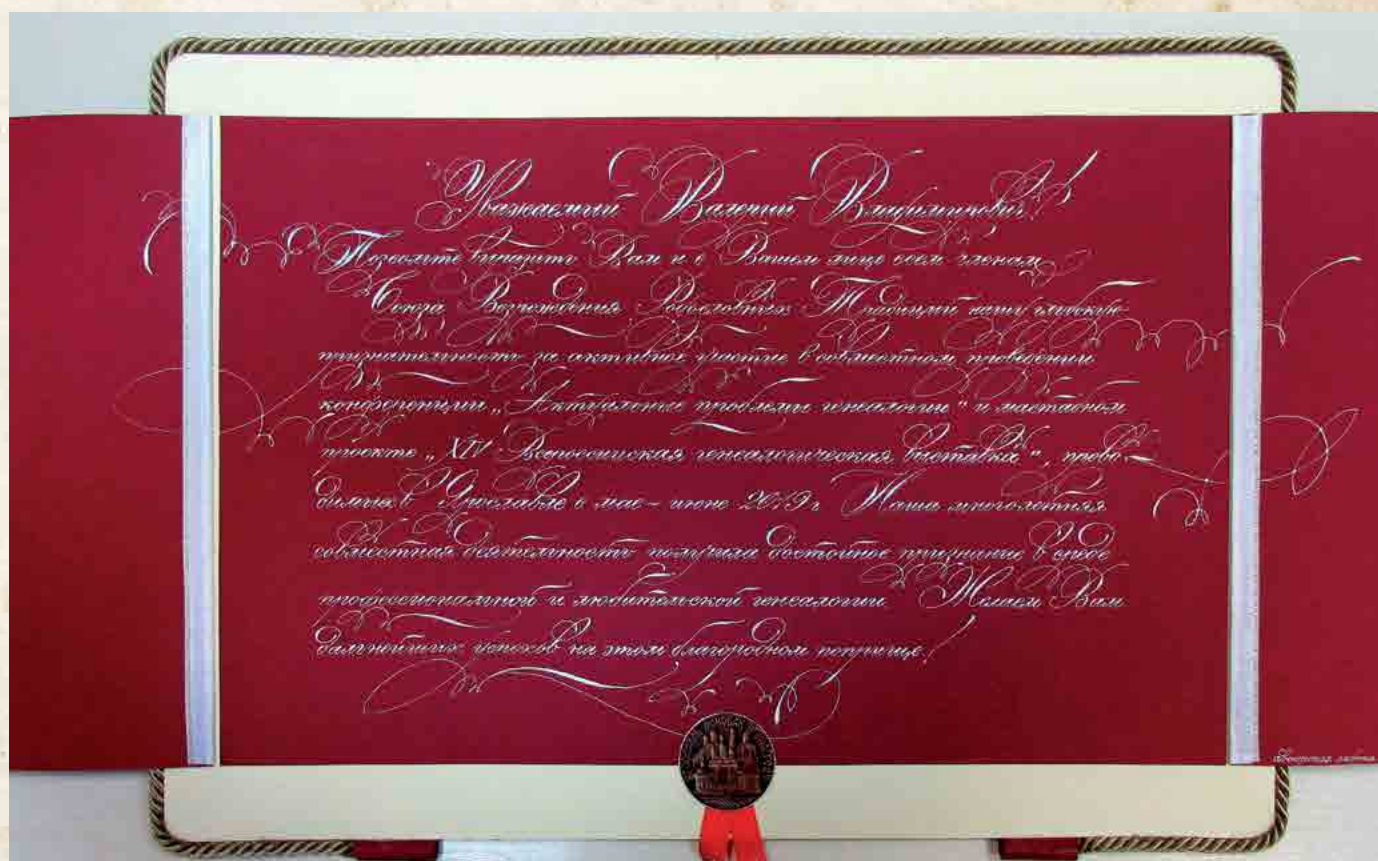 Уважаемый Валерий Владимирович!
Позвольте выразить Вам и в Вашем лице всем членам
Союза Возрождения Родословных Традиций нашу глубокую
признательность за активное участие в совместном проведении
конференции „Актуальные проблемы генеалогии“ и масштабном
проекте „XIV Всероссийская генеалогическая выставка“, прово-
димых в Ярославле в мае – июне 2019 г. Наша многолетняя
совместная деятельность получила достойное признание в среде
профессиональной и любительской генеалогии. Желаем Вам
дальнейших успехов на этом благородном поприще!